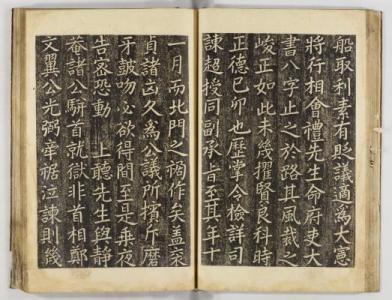 船取利素有貶議適爲大憲
將行相會禮先生命府吏大
書八字止之於路其風裁之
峻正如此未幾擢賢良科時
正德己卯也歷掌令檢詳司
諫超授同副承旨至其年十
一月而北門之禍作矣蓋袞
貞諸凶久爲公議所擯斥磨
牙鼓吻必欲得間至是乘夜
告密恐動 上聽先生與靜
菴諸公騈首就獄非首相鄭
文翼公光弼牽裾泣諫則幾